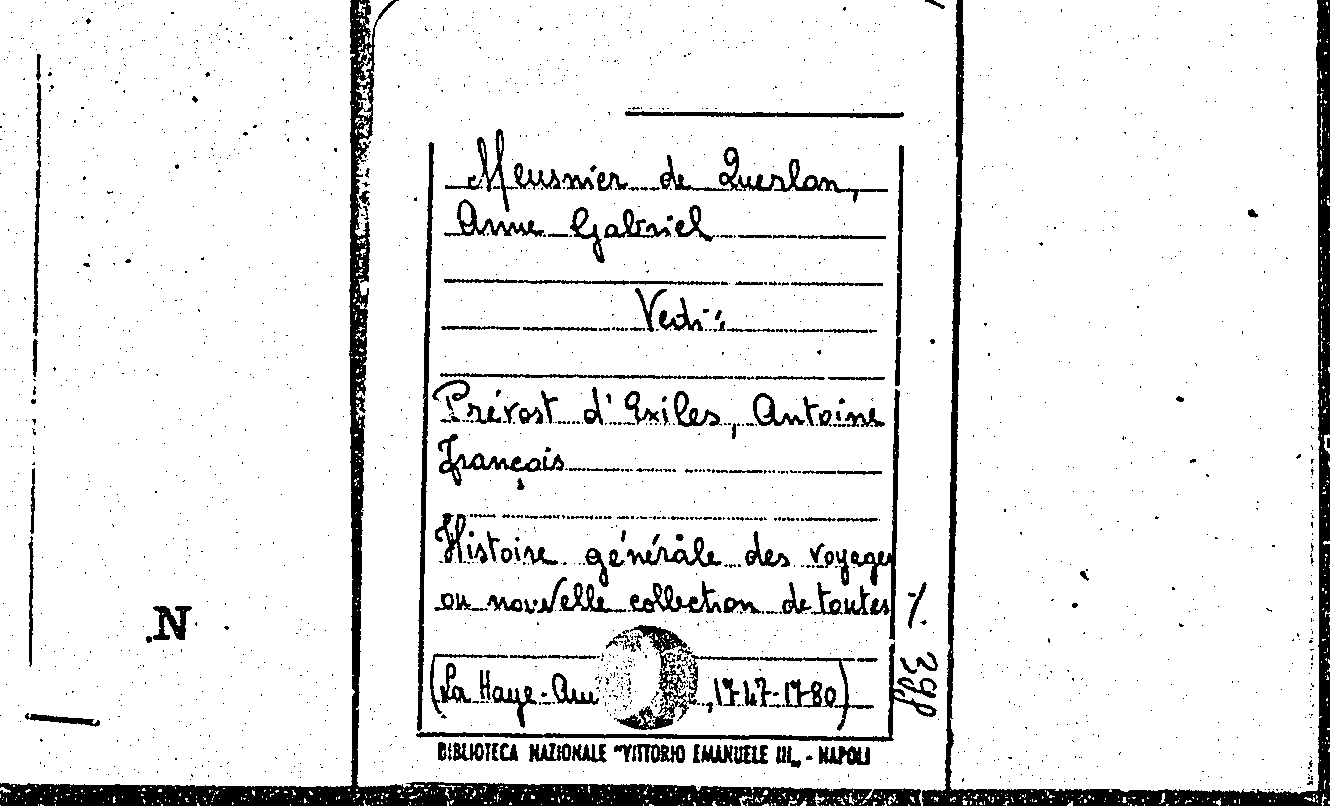 Meusnier de Querlon,
Anne Gabriel
Vedi:
Prévost d'Exiles, Antoine
François
Histoire générale des voyages
ou nouvelle collection de toutes ./.
(La Haye-Am ,1747-1780)
BIBLIOTECA NAZIONALE "VITTORIO EMANUELE III„ - NAPOLI
N